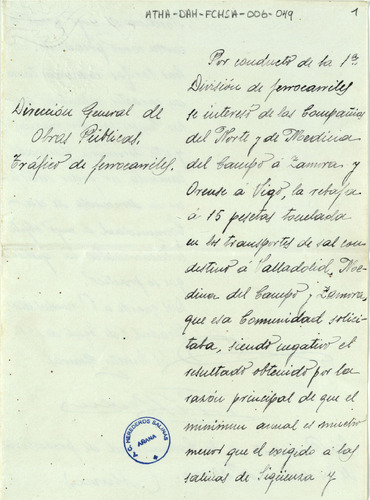 MTHA-DAH-FCHSA-006-049
1
Dirección General de
Obras Públicas.
Tráfico de ferrocarriles.
Por conducto de la 1ª
División de ferrocarriles
se interesó de las Compañías
del Norte y de Medina
del Campo á Zamora y
Orense á Vigo, la rebaja
á 15 pesetas tonelada
en los transportes de sal con
destino á Valladolid, Me-
dina del Campo y Zamora,
que esa Comunidad solici-
taba, siendo negativo el
resultado obtenido por la
razón principal de que el
minimum anual es mucho
menor que el exigido á las
salinas de Sigüenza y
A.C. HEREDEROS SALINAS
AÑANA